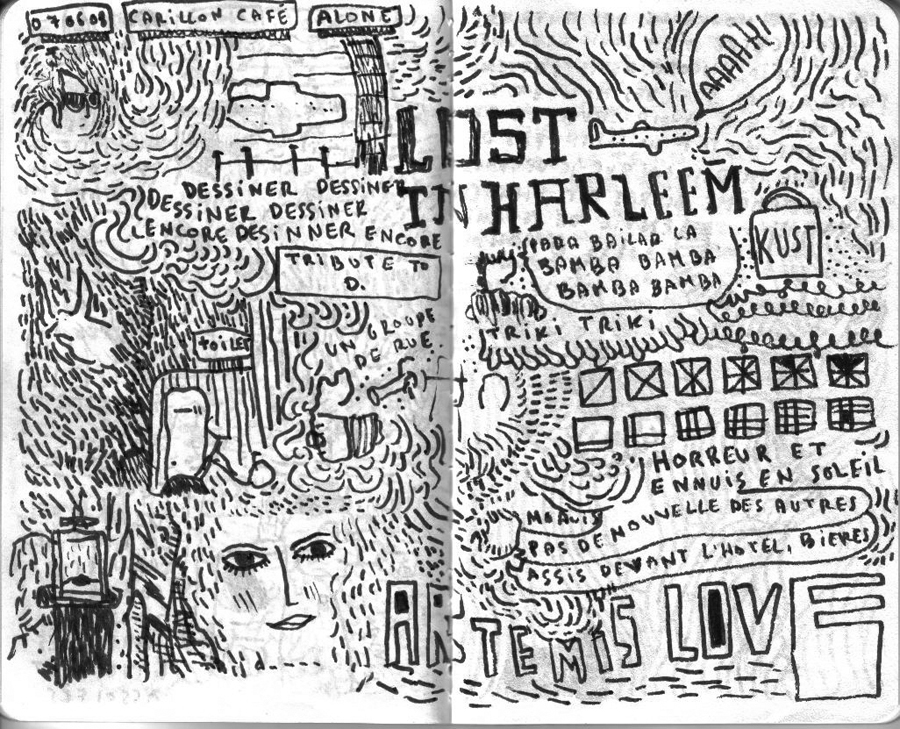 070608
CARILLON CAFÉ
ALONE
DESSINER DESSINER
DESSINER DESSINER
ENCORE DESINNER ENCORE
TRIBUTE TO
D.
toilet
UN GROUPE
DE RUE
AAAAH!
LOST
IN HARLEEM
PARA BAILAR LA
BAMBA BAMBA
BAMBA BAMBA
TRIKI TRIKI
KUST
HORREUR ET
ENNUIS EN SOLEIL
PAS DE NOUVELLE DES AUTRES
ASSIS DEVANT L'HOTEL, BIERES
ARTEMIS LOV